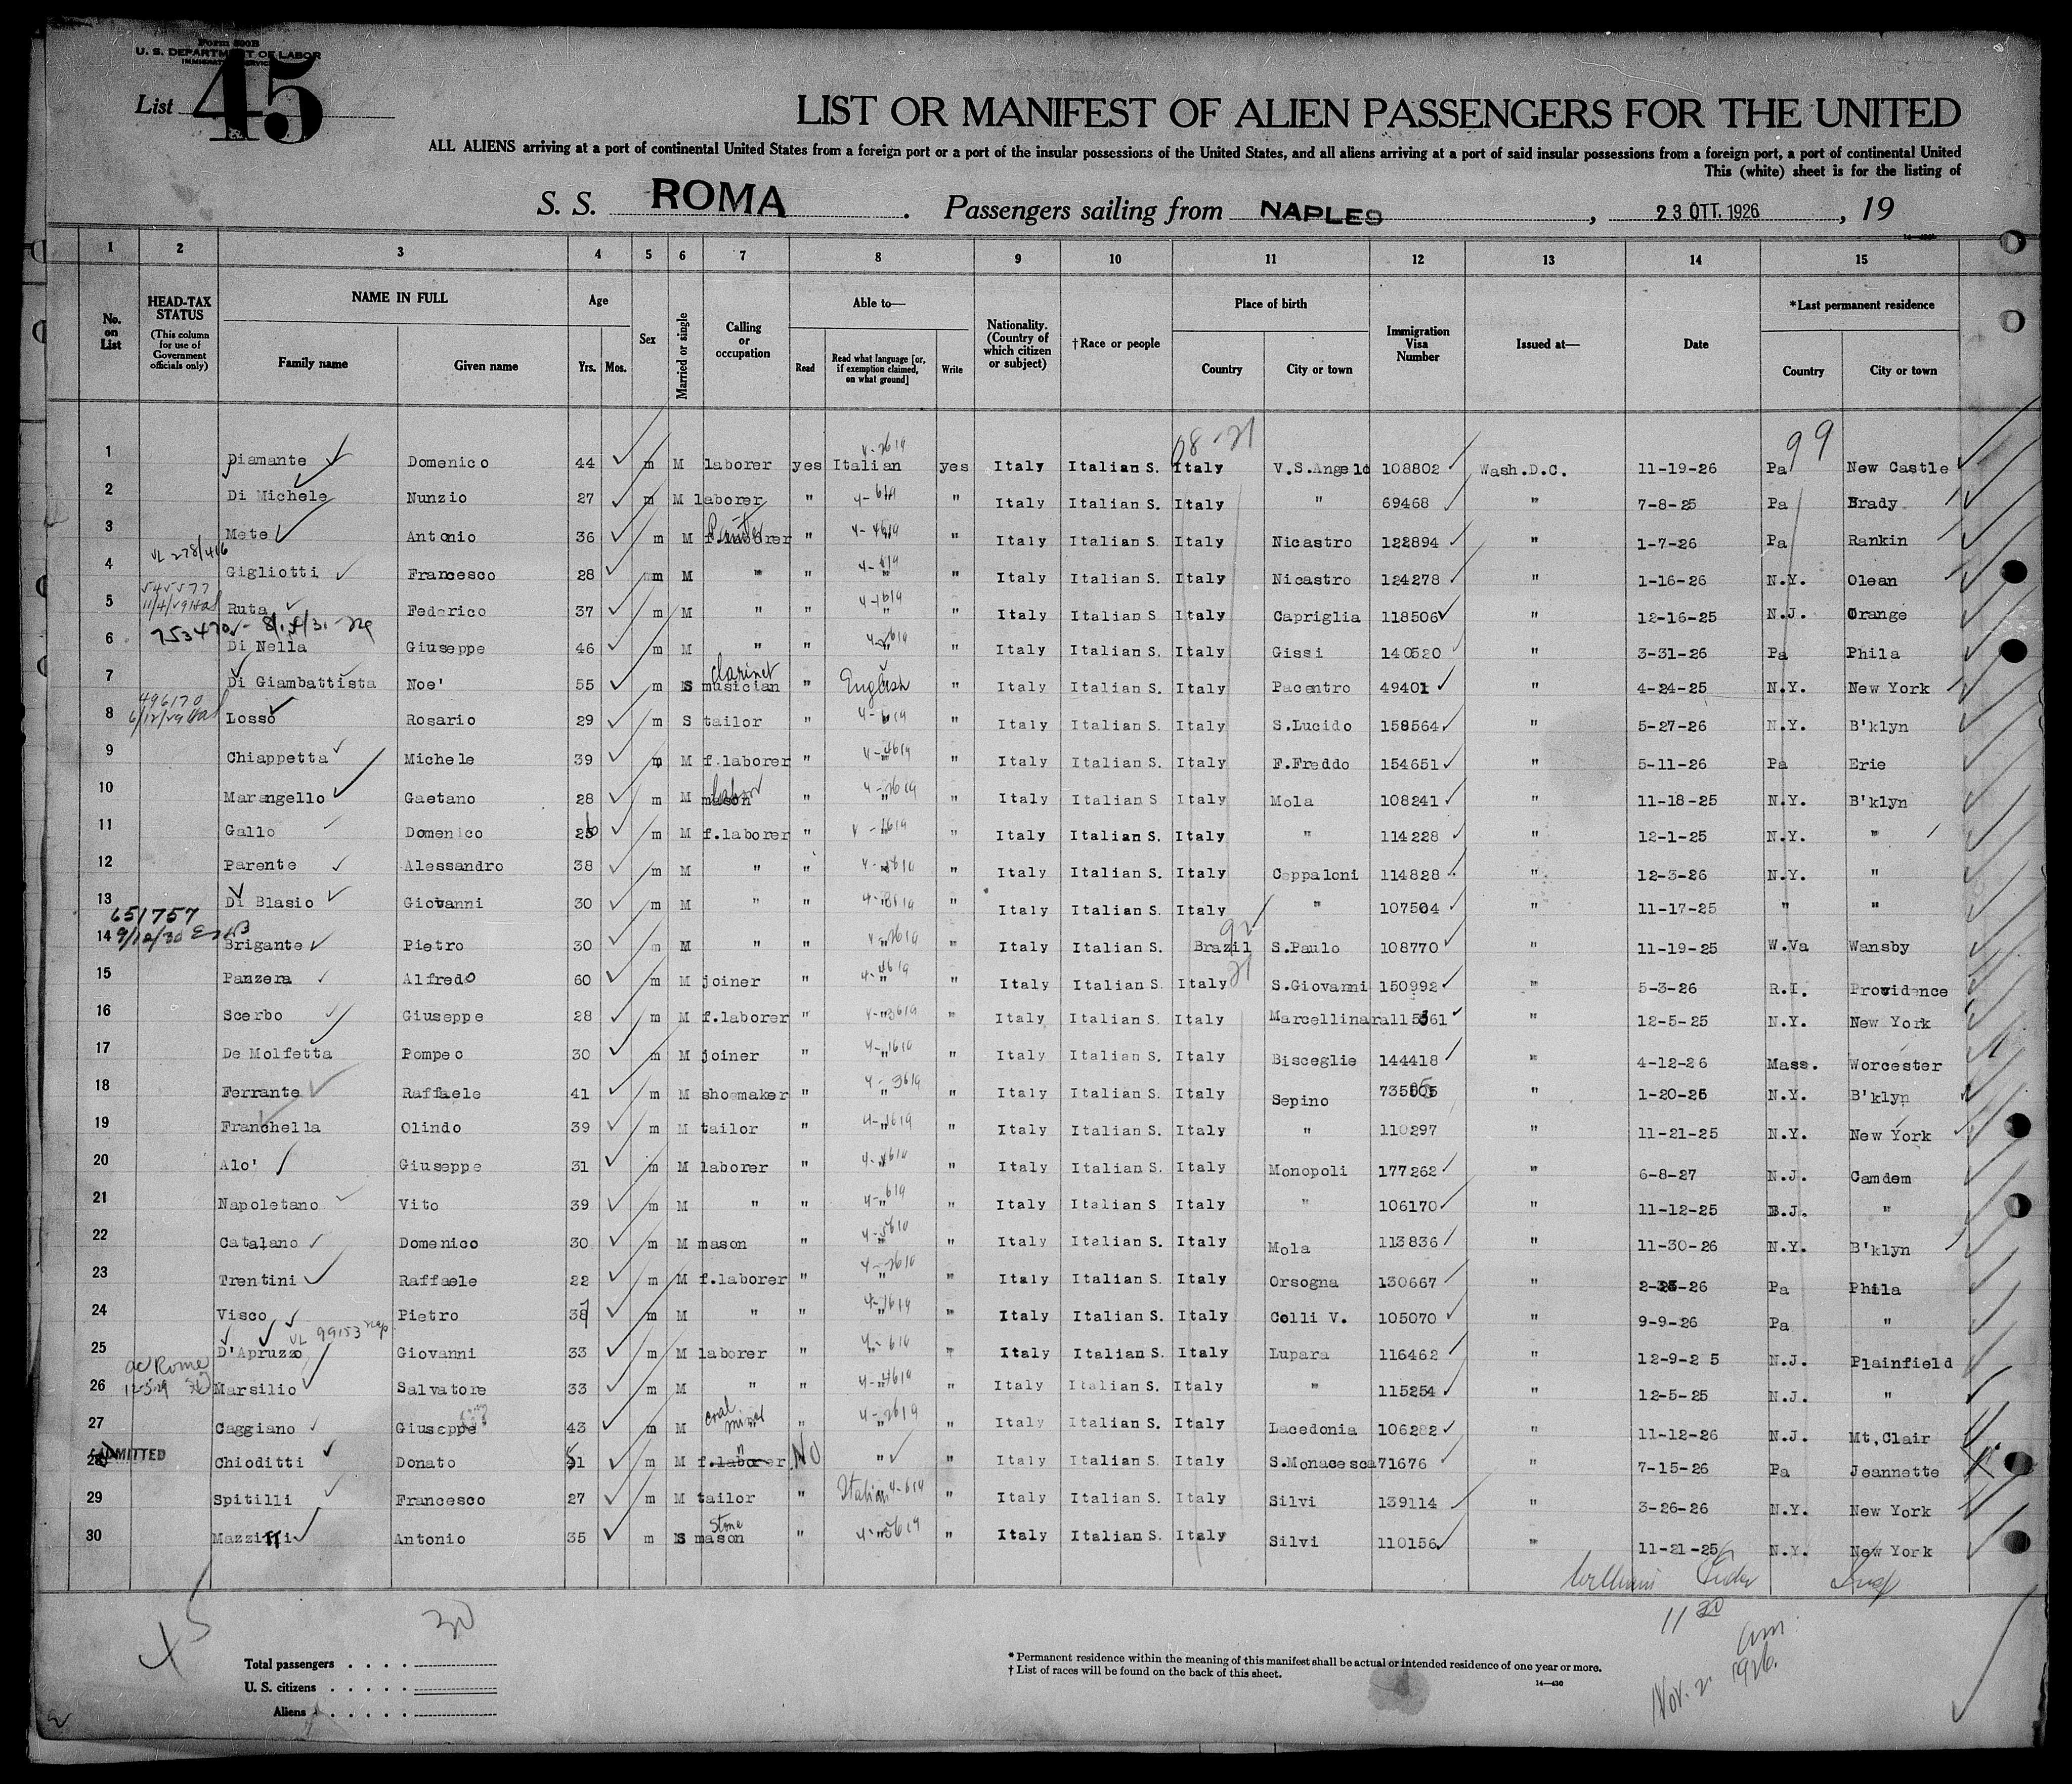 Form 500B
U. S. DEPARTMENT OF LABOR
IMMIGRATION SERVICE
List 45
LIST OR MANIFEST OF ALIEN PASSENGERS FOR THE UNITED
ALL ALIENS arriving at a port of continental United States from a foreign port or a port of the insular possessions of the United States, and all aliens arriving at a port of said insular possessions from a foreign port, a port of continental United
This (white) sheet is for the listing of
S. S. ROMA. Passengers sailing from NAPLES, 23 OTT. 1926, 19
1 2 3 4 5 6 7 8 9 10 11 12 13 14 15
No. on List
HEAD-TAX STATUS (This column for use of Government officials only)
NAME IN FULL Family name Given name
Age Yrs. Mos.
Sex
Married or single
Calling or occupation
Able to— Read Read what language [or, if exemption claimed, on what ground] Write
Nationality. (Country of which citizen or subject)
†Race or people
Place of birth Country City or town
Immigration Visa Number
Issued at—
Date
*Last permanent residence Country City or town
08-21 99
1 Diamante Domenico 44 m M laborer yes Italian yes Italy Italian S. Italy V.S.Angelo 108802 Wash.D.C. 11-19-26 Pa New Castle
2 Di Michele Nunzio 27 m M laborer " " Italy Italian S. Italy " 69468 " 7-8-25 Pa Brady
3 Mete Antonio 36 m M f.laborer " " Italy Italian S. Italy Nicastro 122894 " 1-7-26 Pa Rankin
VL 278/416
4 Gigliotti Francesco 28 m M " " " " Italy Italian S. Italy Nicastro 124278 " 1-16-26 N.Y. Olean
545577
5 Ruta Federico 37 m M " " " " Italy Italian S. Italy Capriglia 118506 " 12-16-25 N.J. Orange
6 Di Nella Giuseppe 46 m M " " " " Italy Italian S. Italy Gissi 140520 " 3-31-26 Pa Phila
7 Di Giambattista Noe' 55 m S clarinet musician " English " Italy Italian S. Italy Pacentro 49401 " 4-24-25 N.Y. New York
496170
8 Losso Rosario 29 m S tailor " " Italy Italian S. Italy S.Lucido 158564 " 5-27-26 N.Y. B'klyn
9 Chiappetta Michele 39 m M f.laborer " " " Italy Italian S. Italy F.Freddo 154651 " 5-11-26 Pa Erie
10 Marangello Gaetano 28 m M mason labor " " " Italy Italian S Italy Mola 108241 " 11-18-25 N.Y. B'klyn
11 Gallo Domenico m M f.laborer " " " Italy Italian S. Italy " 114228 " 12-1-25 N.Y. "
12 Parente Alessandro 38 m M " " " " Italy Italian S. Italy Ceppaloni 114828 " 12-3-26 N.Y. "
13 Di Blasio Giovanni 30 m M " " " " Italy Italian S. Italy " 107504 " 11-17-25 " "
651757
14 Brigante Pietro 30 m M " " " " Italy Italian S. Brazil S.Paulo 108770 " 11-19-25 W.Va Wansby
15 Panzera Alfredo 60 m M joiner " " " Italy Italian S. Italy S.Giovanni 150992 " 5-3-26 R.I. Providence
16 Scerbo Giuseppe 28 m M f.laborer " " " Italy Italian S. Italy Marcellinara 115361 " 12-5-25 N.Y. New York
17 De Molfetta Pompeo 30 m M joiner " " " Italy Italian S. Italy Bisceglie 144418 " 4-12-26 Mass. Worcester
18 Ferrante Raffaele 41 m M shoemaker " " " Italy Italian S. Italy Sepino " 1-20-26 N.Y. B'klyn
19 Franchella Olindo 39 m M tailor " " " Italy Italian S. Italy " 110297 " 11-21-25 N.Y. New York
20 Alo' Giuseppe 31 m M laborer " " " Italy Italian S. Italy Monopoli 177262 " 6-8-27 N.J. Camdem
21 Napoletano Vito 39 m M " " " " Italy Italian S Italy " 106170 " 11-12-25 "
22 Catalano Domenico 30 m M mason " " " Italy Italian S. Italy Mola 113836 " 11-30-26 N.Y. B'klyn
23 Trentini Raffaele 22 m M f.laborer " " " Italy Italian S. Italy Orsogna 130667 " Pa Phila
24 Visco Pietro m M " " " " Italy Italian S. Italy Colli V. 105070 " 9-9-26 Pa "
VL 99153
25 D'Apruzzo Giovanni 33 m M laborer " " " Italy Italian S. Italy Lupara 116462 " 12-9-25 N.J. Plainfield
26 Marsilio Salvatore 33 m M " " " " Italy Italian S. Italy " 115254 " 12-5-25 N.J. "
27 Caggiano Giuseppe 43 m M coal miner " " " Italy Italian S. Italy Lacedonia 106282 " 11-12-26 N.J. Mt.Clair
28 ADMITTED Chioditti Donato 51 m M f.laborer No " " Italy Italian S. Italy S.Monacesca 71676 " 7-15-26 Pa Jeannette
29 Spitilli Francesco 27 m M tailor " Italian " Italy Italian S. Italy Silvi 139114 " 3-26-26 N.Y. New York
30 Antonio 35 m S Stone mason " " " Italy Italian S. Italy Silvi 110156 " 11-21-25 N.Y. New York
30
Total passengers
U. S. citizens
Aliens
* Permanent residence within the meaning of this manifest shall be actual or intended residence of one year or more.
† List of races will be found on the back of this sheet.
14—430
11 30 am
Nov. 2 1926.